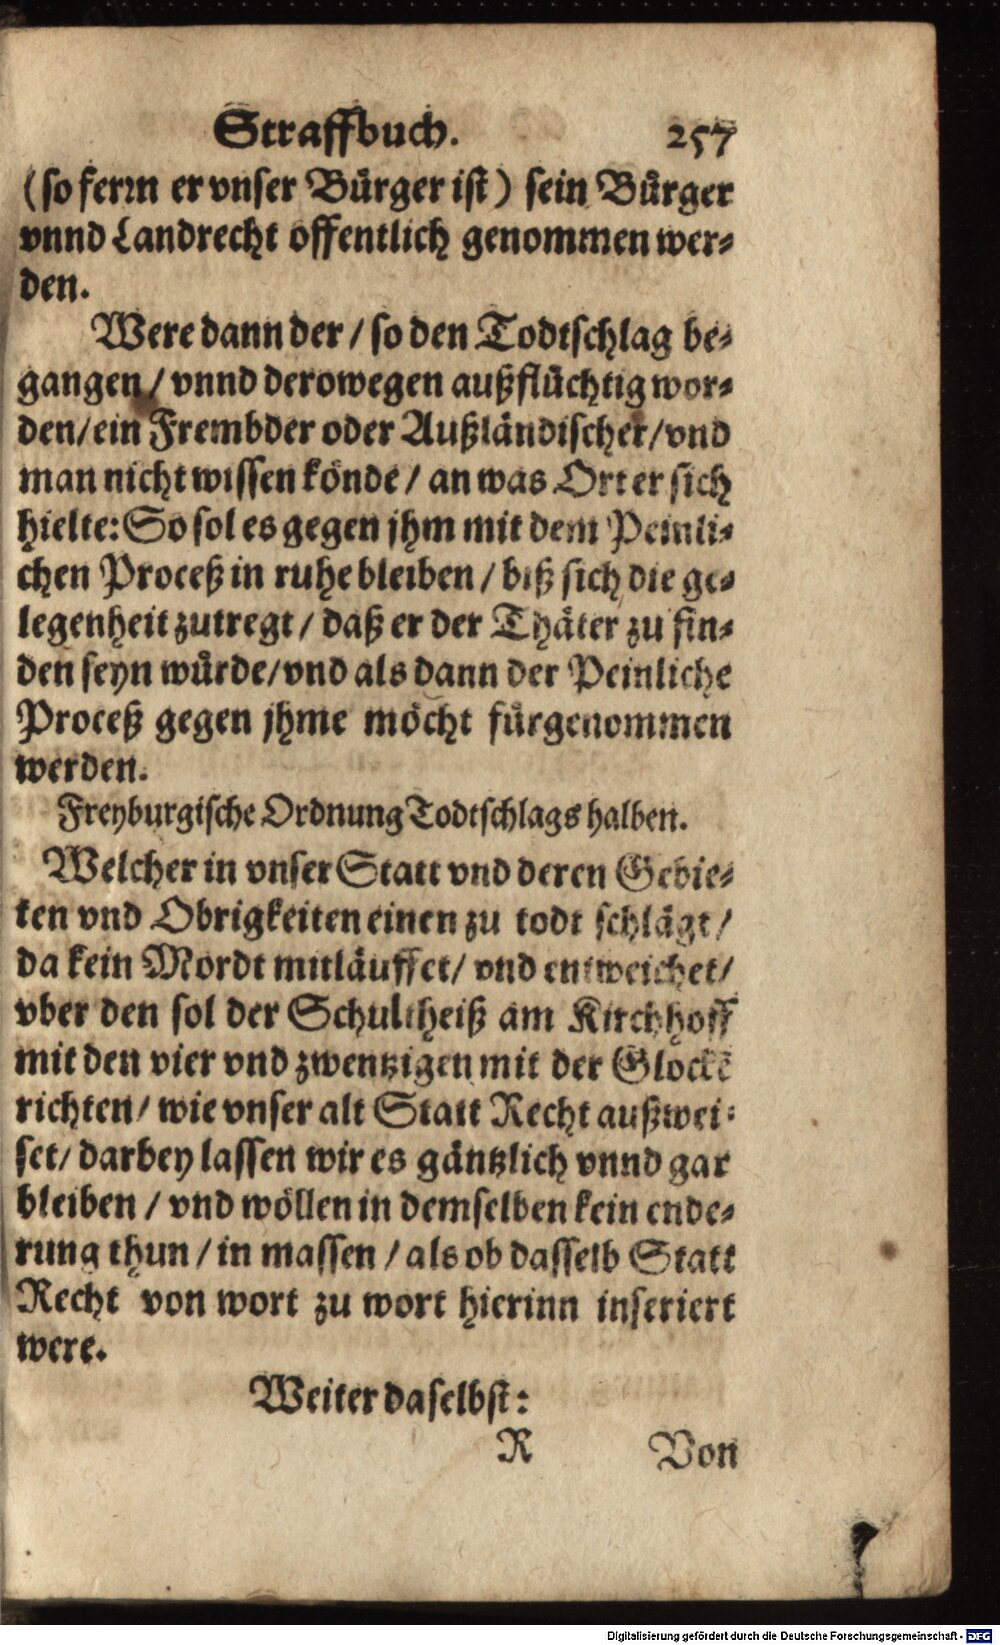 Straffbuch. 257
(so ferrn er vnser Bůrger ist) sein Bůrger
vnnd Landrecht offentlich genommen wer⸗
den.
Were dann der / so den Todtschlag be⸗
gangen / vnnd derowegen außflüchtig wor⸗
den/ein Frembder oder Außländischer/vnd
man nicht wissen könde / an was Ort er sich
hielte: So sol es gegen jhm mit dem Peinli⸗
chen Proceß in ruhe bleiben / biß sich die ge⸗
legenheit zutregt / daß er der Thäter zu fin⸗
den seyn wůrde/vnd als dann der Peinliche
Proceß gegen jhme möcht fürgenommen
werden.
Freyburgische Ordnung Todtschlags halben.
Welcher in vnser Statt vnd deren Gebie⸗
ten vnd Obrigkeiten einen zu todt schlägt /
da kein Mordt mitläuffet/ vnd entweichet/
vber den sol der Schultheiß am Kirchhoff
mit den vier vnd zwentzigen mit der Glockē
richten/ wie vnser alt Statt Recht außwei⸗
set/ darbey lassen wir es gäntzlich vnnd gar
bleiben / vnd wöllen in demselben kein ende⸗
rung thun / in massen / als ob dasselb Statt
Recht von wort zu wort hierinn inseriert
were.
Weiter daselbst:
R Von
Digitalisierung gefördert durch die Deutsche Forschungsgemeinschaft - DFG